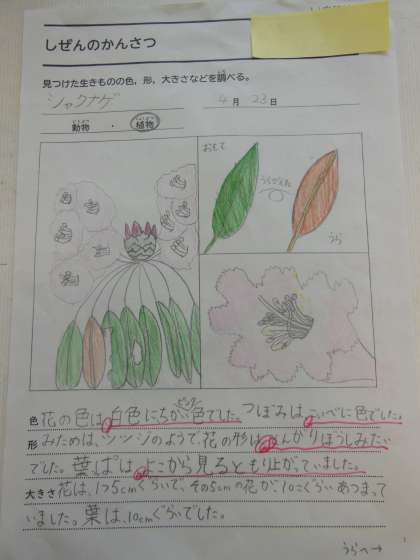 しぜんのかんさつ
見つけた生きものの色、形、大きさなどを調べる。
シャクナゲ 4月23日
動物 ・ 植物
おもて
うらがえす
うら
色 花の色は、白色にちかいピンク色でした。つぼみは、こいべに色でした。
形 みためは、ツツジのようで、花の形は、さんかくぼうしみたい
でした。葉っぱは、よこから見るともり上がっていました。
大きさ 花は、1つ5cmぐらいで、その5cmの花が、10こぐらいあつまって
いました。葉は、10cmぐらいでした。
うらへ→